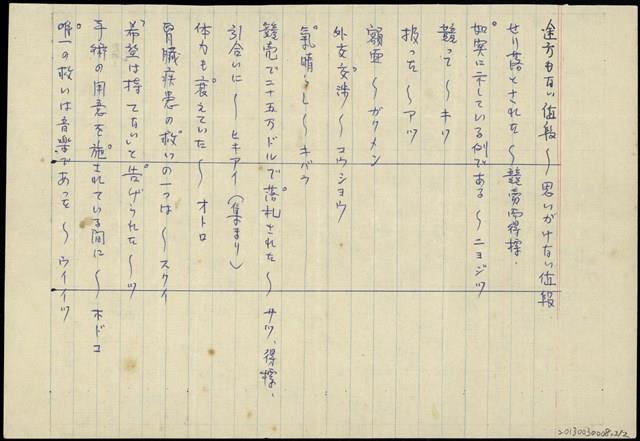 途方もない値段〜思いがけない値段.
せり落とされた〜競売而得標.
如実に示している例である〜ニョジツ
競って〜キソ
扱った〜アツ
額面〜ガクメン
外交交渉〜コウショウ
気晴らし〜キバラ
競売で二十五万ドルで落札された〜サツ、得標.
引合いに〜ヒキアイ(集まり)
体力も衰えていた〜オトロ
腎臓疾患の救いの一つは〜スクイ
希望は持てないと告げられた〜ツ
手術の用意を施されている間に〜ホドコ
唯一の救いは音楽であった〜ウイイツ
20130030008.2/2